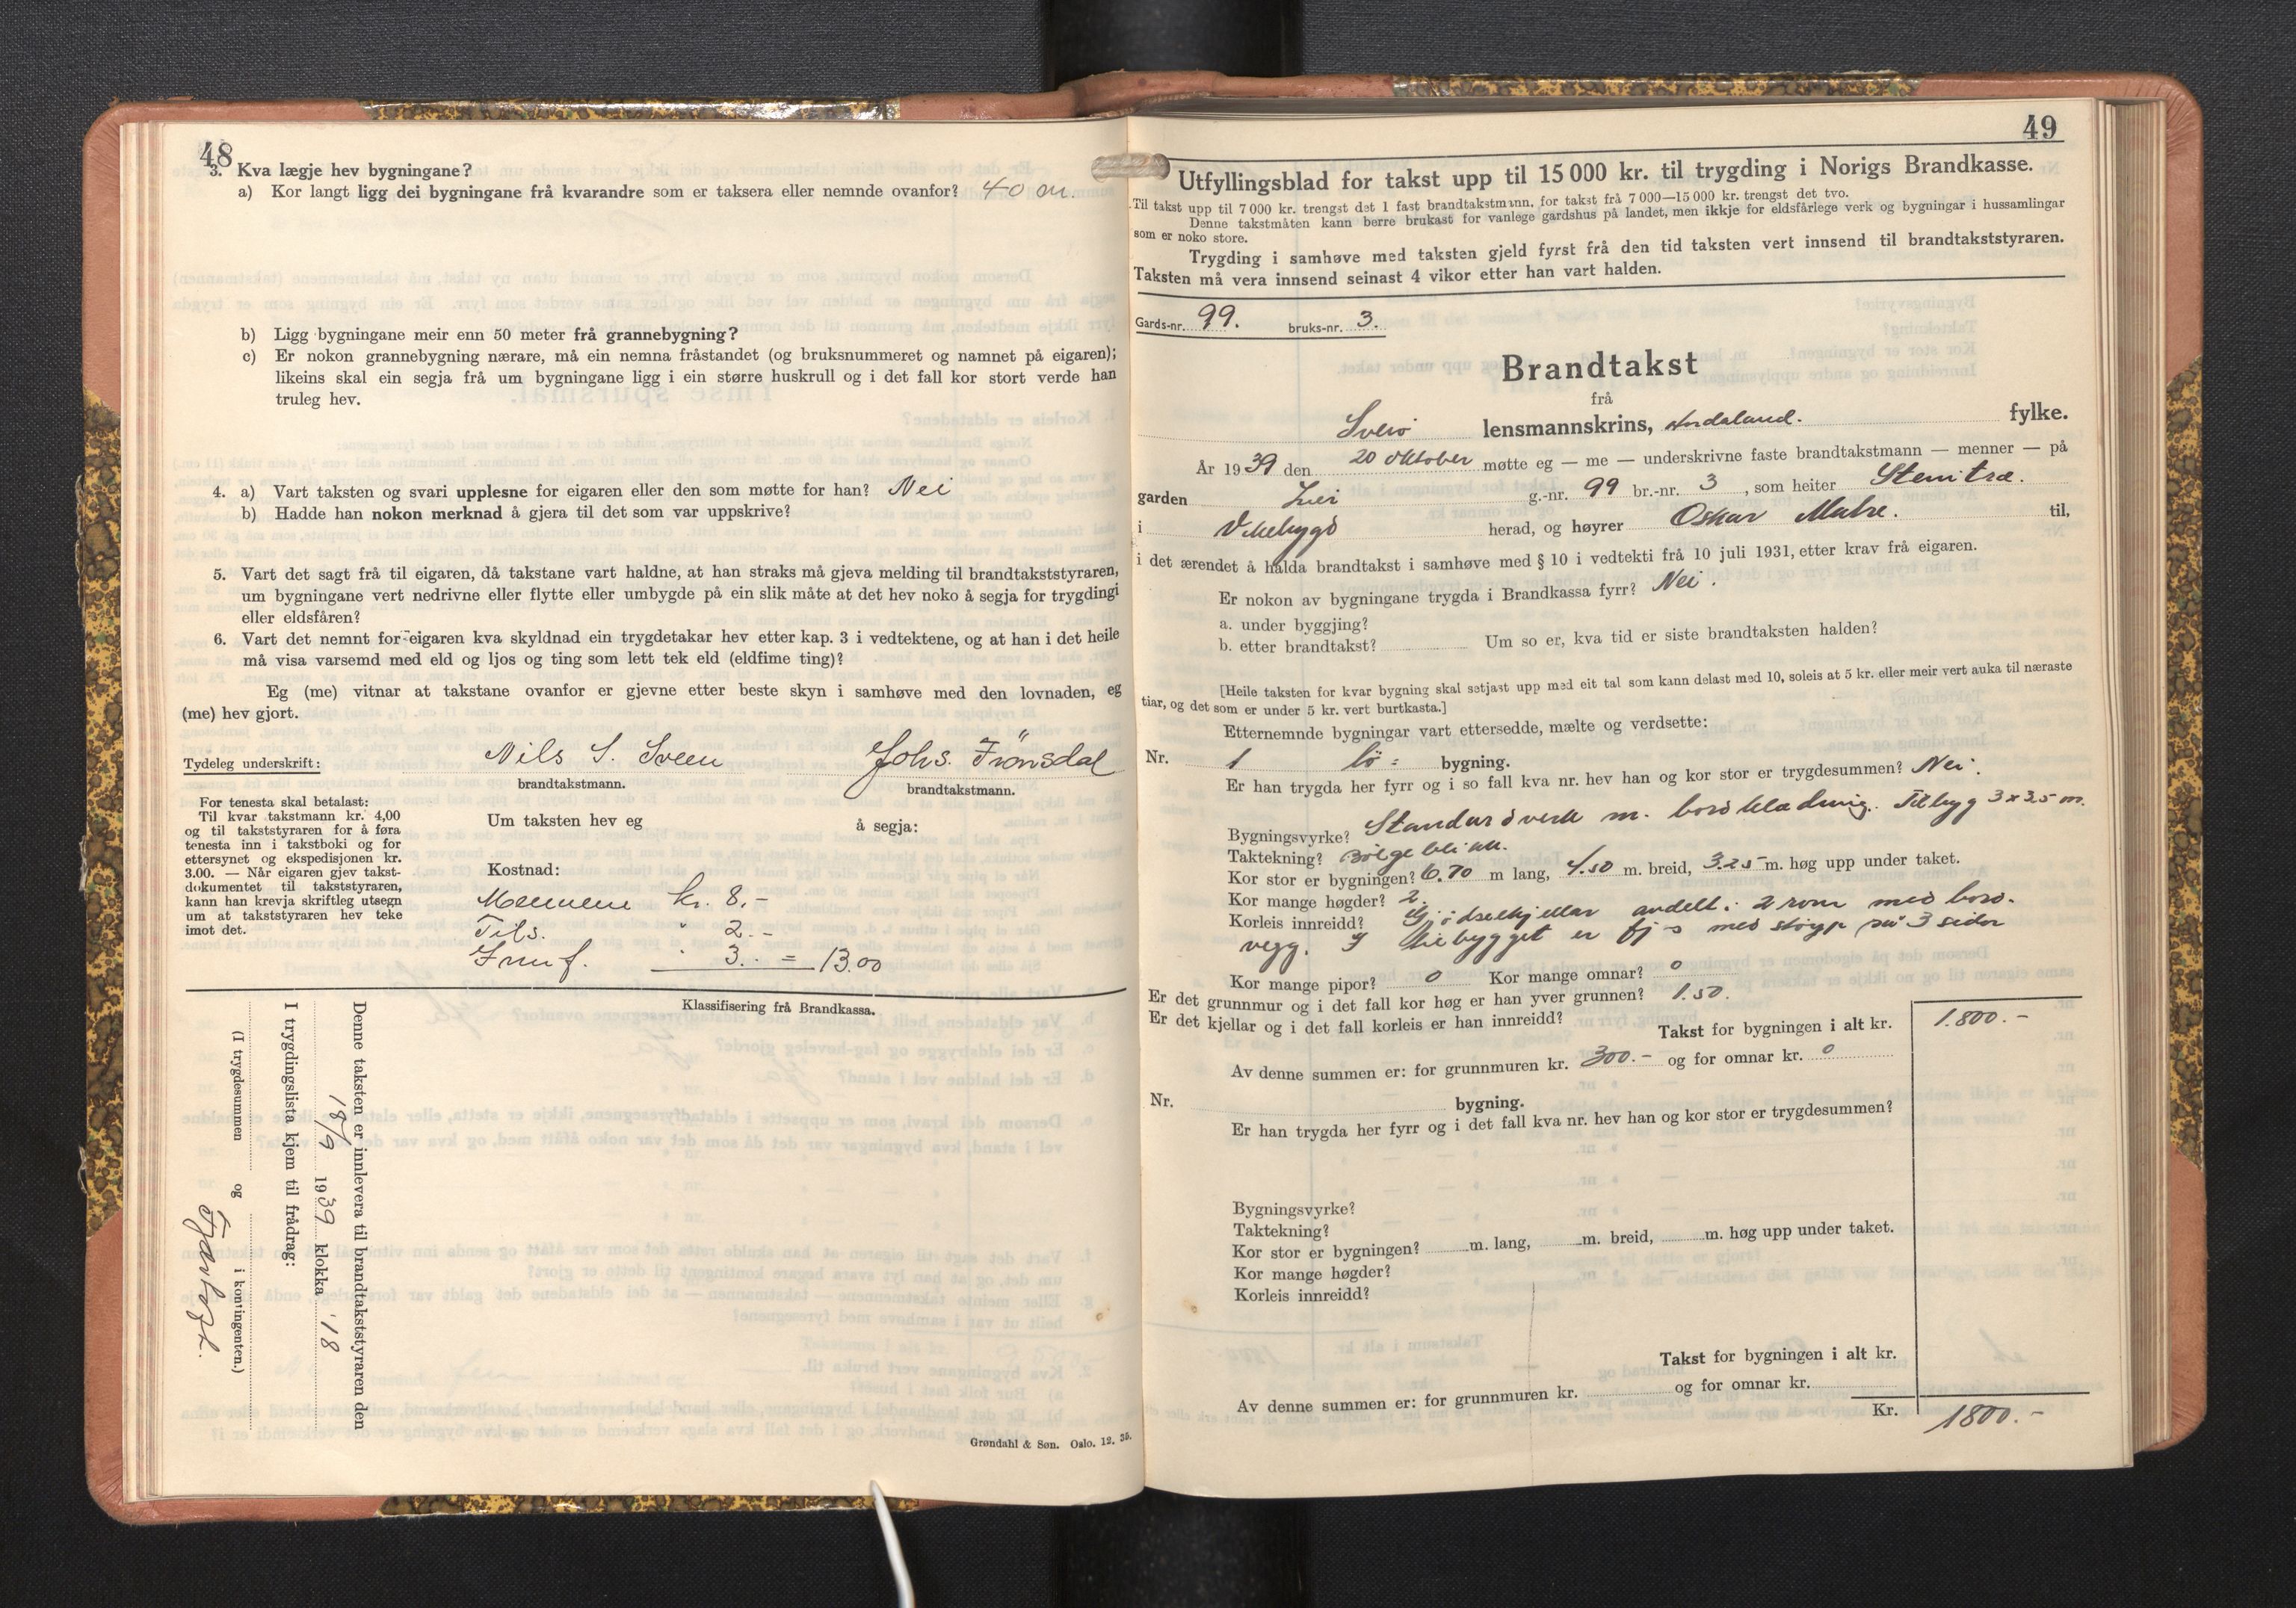 48
3. Kva lægje hev bygningane?
a) Kor langt ligg dei bygningane frå kvarandre som er taksera eller nemnde ovanfor? 40 m.
b) Ligg bygningane meir enn 50 meter frå grannebygning?
c) Er nokon grannebygning nærare, må ein nemna fråstandet (og bruksnummeret og namnet på eigaren);
likeins skal ein segja frå um bygningane ligg i ein større huskrull og i det fall kor stort verde han
truleg hev.
4. a) Vart taksten og svari upplesne for eigaren eller den som møtte for han? Nei
b) Hadde han nokon merknad å gjera til det som var uppskrive?
5. Vart det sagt frå til eigaren, då takstane vart haldne, at han straks må gjeva melding til brandtakststyraren,
um bygningane vert nedrivne eller flytte eller umbygde på ein slik måte at det hev noko å segja for trygdingi
eller eldsfåren?
6. Vart det nemnt for eigaren kva skyldnad ein trygdetakar hev etter kap. 3 i vedtektene, og at han i det heile
må visa varsemd med eld og ljos og ting som lett tek eld (eldfime ting)?
Eg (me) vitnar at takstane ovanfor er gjevne etter beste skyn i samhøve med den lovnaden, eg
(me) hev gjort.
Tydeleg underskrift: Nils S. Sveen Johs. Trönsdal
brandtakstmann. brandtakstmann.
For tenesta skal betalast:
Til kvar takstmann kr. 4,00
og til takststyraren for å føra
tenesta inn i takstboki og for
ettersynet og ekspedisjonen kr.
3.00. — Når eigaren gjev takst-
dokumentet til takststyraren,
kann han krevja skriftleg utsegn
um at takststyraren hev teke
imot det.
Um taksten hev eg å segja:
Kostnad:
Mennene kr. 8.-
Tils. " 2.-
Innf. " 3.- = 13.00
Klassifisering frå Brandkassa.
Denne taksten er innlevera til brandtakststyraren den
18/9 1939 klokka 18
I trygdingslista kjem til frådrag:
(I trygdesummen og i kontingenten.)
Grøndahl & Søn. Oslo. 12. 35.
49
Utfyllingsblad for takst upp til 15 000 kr. til trygding i Norigs Brandkasse.
Til takst upp til 7 000 kr. trengst det 1 fast brandtakstmann, for takst frå 7 000—15 000 kr. trengst det tvo.
Denne takstmåten kann berre brukast for vanlege gardshus på landet, men ikkje for eldsfårlege verk og bygningar i hussamlingar
som er noko store.
Trygding i samhøve med taksten gjeld fyrst frå den tid taksten vert innsend til brandtakststyraren.
Taksten må vera innsend seinast 4 vikor etter han vart halden.
Gards-nr. 99. bruks-nr. 3.
Brandtakst
frå
Sveio lensmannskrins, Hordaland. fylke.
År 1939 den 20 oktober møtte eg — me — underskrivne faste brandtakstmann — menner — på
garden Lier g.-nr. 99 br.-nr. 3, som heiter
i Vikebygd herad, og høyrer Oskar Matre. til,
i det ærendet å halda brandtakst i samhøve med § 10 i vedtekti frå 10 juli 1931, etter krav frå eigaren.
Er nokon av bygningane trygda i Brandkassa fyrr? Nei.
a. under byggjing?
b. etter brandtakst? Um so er, kva tid er siste brandtaksten halden?
[Heile taksten for kvar bygning skal setjast upp med eit tal som kann delast med 10, soleis at 5 kr. eller meir vert auka til næraste
tiar, og det som er under 5 kr. vert burtkasta.]
Etternemnde bygningar vart ettersedde, mælte og verdsette:
Nr. 1 lö= bygning.
Er han trygda her fyrr og i so fall kva nr. hev han og kor stor er trygdesummen? Nei.
Bygningsvyrke? Standardverk m. bordkladning. Tilbyg 3 x 3,5 m.
Taktekning? Bölgeblikk.
Kor stor er bygningen? 6.70 m lang, 4.50 m. breid, 3.25 m. høg upp under taket.
Kor mange høgder? 2.
Korleis innreidd? Gjödselkjellar avdelt i 2 rom med bord-
vegg. I tilbygget er fjos med støyp på 3 sidor
Kor mange pipor? 0 Kor mange omnar? 0
Er det grunnmur og i det fall kor høg er han yver grunnen? 1.50.
Er det kjellar og i det fall korleis er han innreidd?
Takst for bygningen i alt kr. 1.800.-
Av denne summen er: for grunnmuren kr. 300.- og for omnar kr. 0
Nr. bygning.
Er han trygda her fyrr og i det fall kva nr. hev han og kor stor er trygdesummen?
Bygningsvyrke?
Taktekning?
Kor stor er bygningen? m. lang, m. breid, m. høg upp under taket.
Kor mange høgder?
Korleis innreidd?
Takst for bygningen i alt kr.
Av denne summen er: for grunnmuren kr. og for omnar kr.
Kr. 1800.-